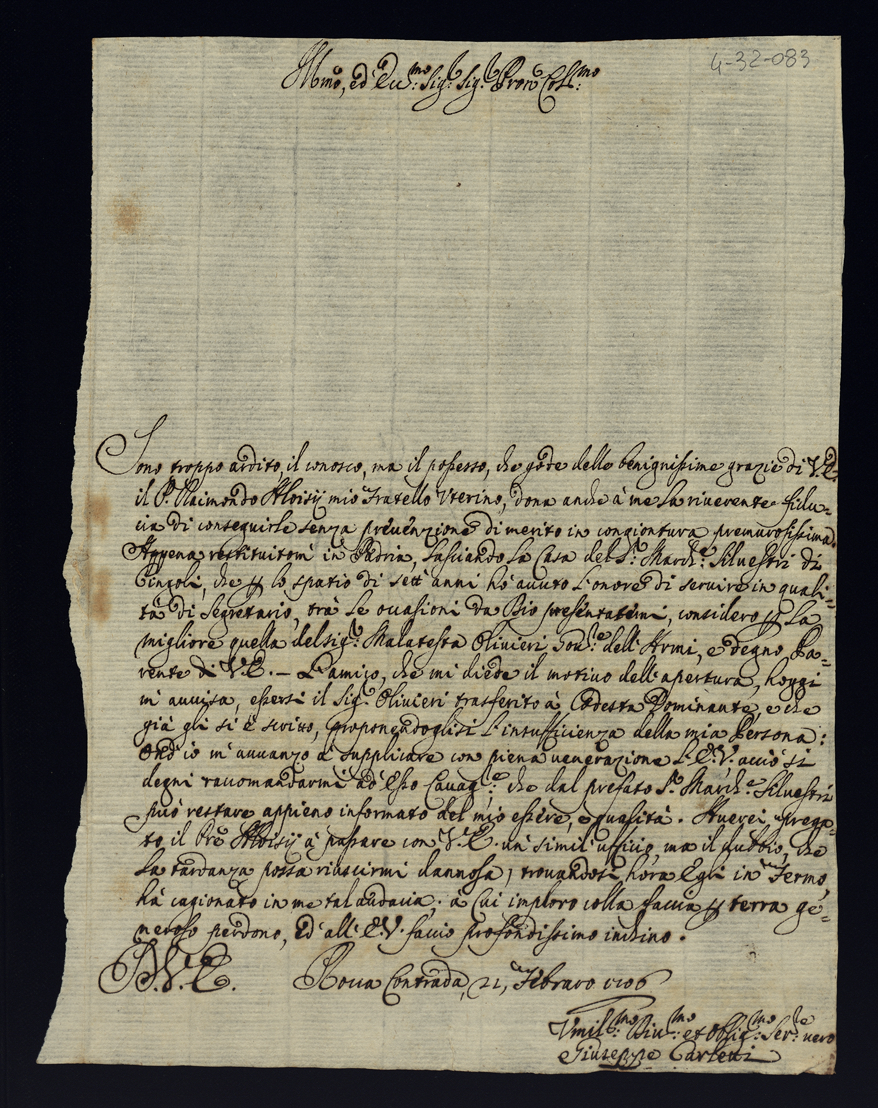 4-32-083
Illmo, ed Ecc:mo Sig:r Sig:r Pron Coll:mo
Sono troppo ardito, il conosco, ma il possesso, che gode delle benignissime grazie di V.E.
il P. Raimondo Aloisij mio Fratello Vterino, dona anche à me la riuerente fidu=
cia di conseguirle senza preuenzione di merito in congiontura premurosissima.
Appena restituitomi in Patria, lasciando la Casa del S.r March:e Siluestri di
Cingoli, che p lo spatio di sett' anni hò auuto l'onore di seruire in quali=
tà di Segretario, trà le occasioni da Dio presentatemi, considero p la
migliore quella del sig:r Malatesta Oliuieri Gou:re dell'Armi, e degno Pa=
rente di V.E. – L'amico, che mi diede il motiuo dell'apertura, hoggi
m'auuisa, essersi il Sig:r Oliuieri trasferito à Codesta Dominante, e che
già gli si è scritto, proponendoglisi l'insufficienza della mia Persona:
Ond'io m'auuanzo à supplicare con piena uenerazione l'E.V. acciò si
degni raccomandarmi ad Esso Cauag:re, che dal prefato S.r March:e Siluestri
può restare appieno informato del mio essere, e qualità. Hauerei prega=
to il Pre Aloisij à passare con V.E. un simil'ufficio, ma il dubbio, che
la tardanza possa riuscirmi dannosa, trouandosi hora Egli in Fermo,
hà cagionato in me tal audacia. à cui imploro colla faccia p terra ge=
neroso perdono, ed all'E.V. faccio profondissimo inchino.
D.V.E. Rocca Contrada, 21, Febraro 1706
Vmil:mo Diu:mo et Obblig:mo Ser:re uero
Giuseppe Carletti